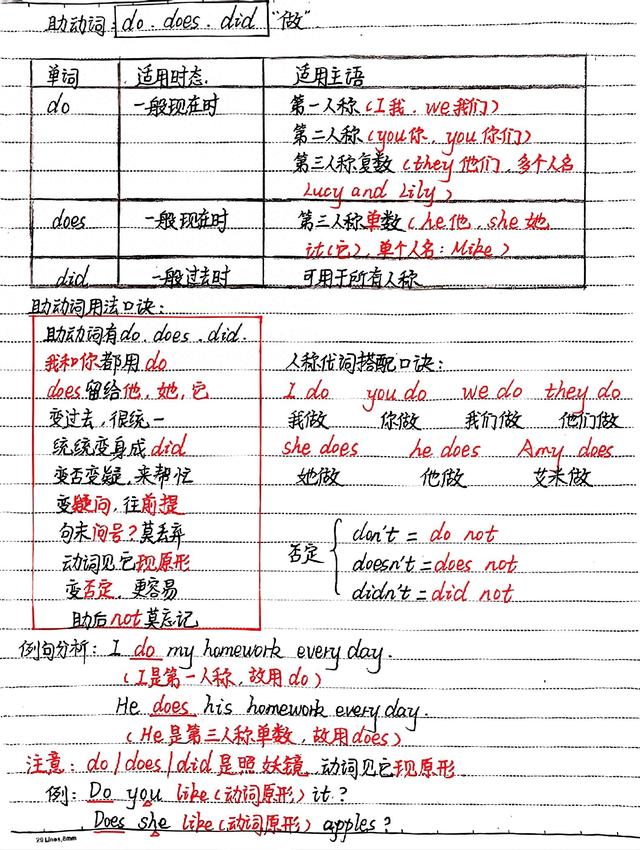 助动词: do . does . did "做"
单词 适用时态 适用主语
do 一般现在时 第一人称(I我 . we我们)
第二人称(you你 , you你们)
第三人称复数(they他们 , 多个人名
Lucy and Lily)
does 一般现在时 第三人称单数(he他 , she她
it(它) , 单个人名:Mike)
did 一般过去时 可用于所有人称
助动词用法口诀:
助动词有do . does . did.
我和你都用do
does留给他,她,它
变过去,很统一
统统变身成did
变否变疑,来帮忙
变疑问,往前提
句末问号?莫丢弃
动词见它现原形
变否定,更容易
助后not莫忘记
人称代词搭配口诀:
I do you do we do they do
我做 你做 我们做 他们做
she does he does Amy does
她做 他做 艾米做
否定
don't = do not
doesn't = does not
didn't = did not
例句分析: I do my homework every day.
(I是第一人称,故用do)
He does his homework every day.
(He是第三人称单数,故用does)
注意: do / does / did是照妖镜,动词见它现原形
例: Do you like(动词原形) it?
Does she like(动词原形) apples?
29 Lines, 8mm